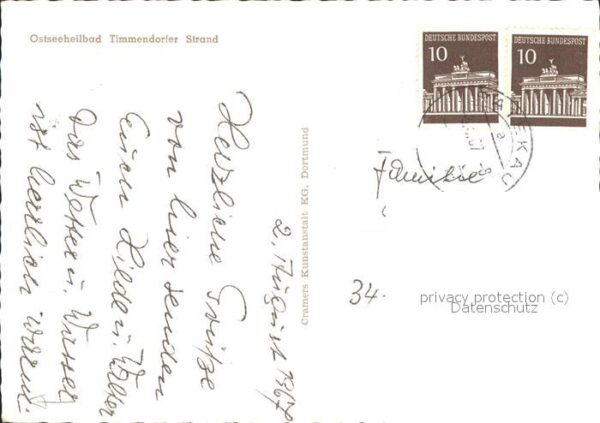 Ostseeheilbad Timmendorfer Strand
DEUTSCHE BUNDESPOST
10
DEUTSCHE BUNDESPOST
10
2. August 1967
Herzliche Grüße
von hier senden
Euch Hilde u. Walter
Das Wetter u. Wasser
ist herrlich warm.
Cramers Kunstanstalt KG. Dortmund
EKAU
Familie
34.
privacy protection (c)
Datenschutz